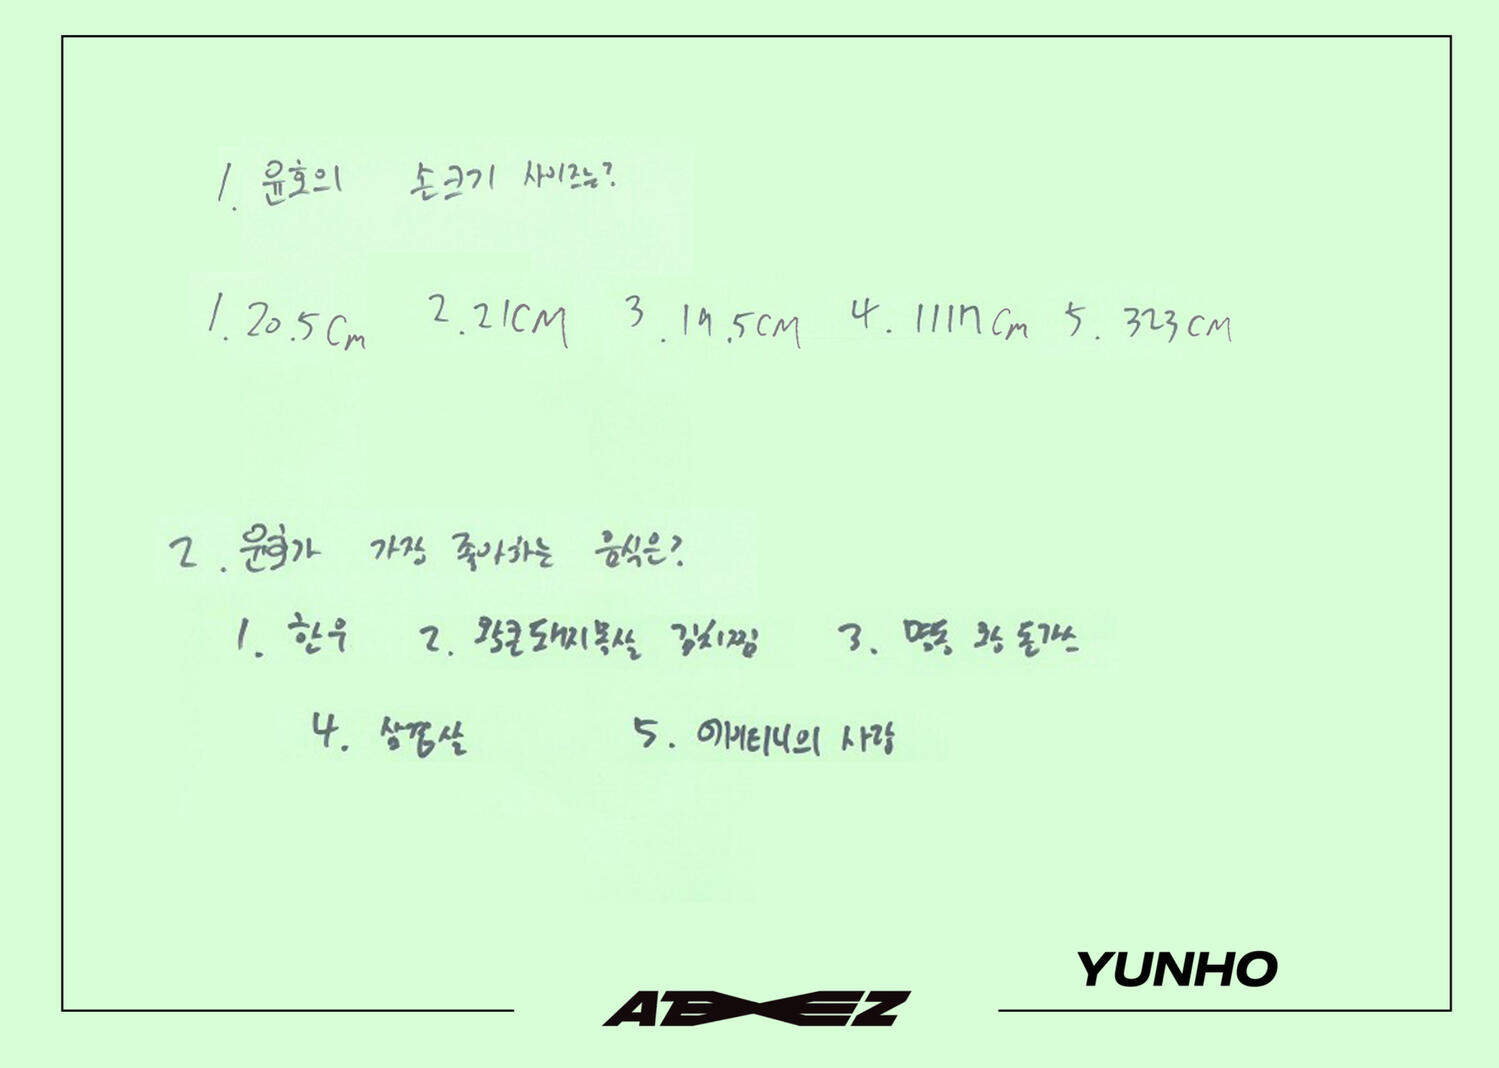 1. 윤호의 손크기 사이즈는?
1. 20.5Cm 2. 21CM 3. 19.5CM 4. 1117Cm 5. 323CM
2. 윤호가 가장 좋아하는 음식은?
1. 한우 2. 왁큰돼지목살 김치찜 3. 명동 왕 돈가스
4. 삼겹살 5. 에이티니의 사랑
YUNHO
ATEEZ